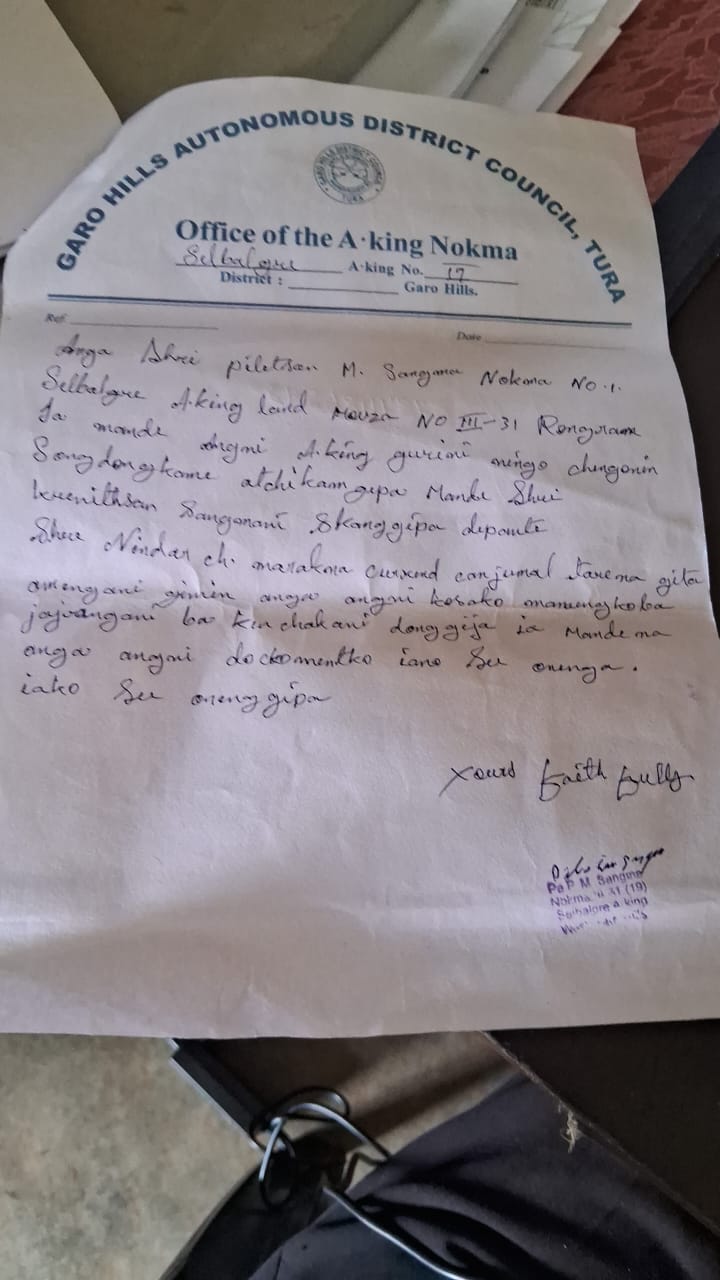 GARO HILLS AUTONOMOUS DISTRICT COUNCIL, TURA
GARO HILLS DISTRICT COUNCIL
TURA
Office of the A·king Nokma
Selbalgre A·king No. 19
District : Garo Hills.
Ref. Date
Anga Shri piletson M. Sangma Nokma No.1.
Selbalgre A·king land Mouza No III-31 Rongram
Ia mande angni A·king gurini mingo chengonin
Songdongkame atchikamgipa Mande Shri
Sangmani Skanggipa depante
Shri Nindan ch. marakma gita
amengani gimin anga angni kosako manmengkoba
jajrangani ba kenchakani donggija ia Mande na
anga angni dockomentko iano Su onenga.
iako Su onenggipa
yours faith fully
Pa P M Sangma
Nokma 31 (19)
Selbalgre a king